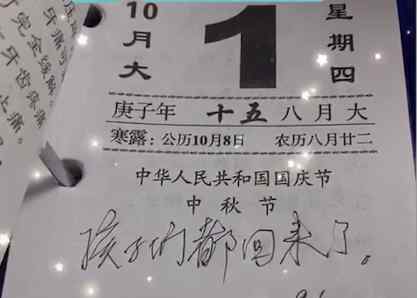 10月大
1
星期四
庚子年 十五 八月大
寒露：公历10月8日 农历八月廿二
中华人民共和国国庆节
中秋节
孩子们都回来了。